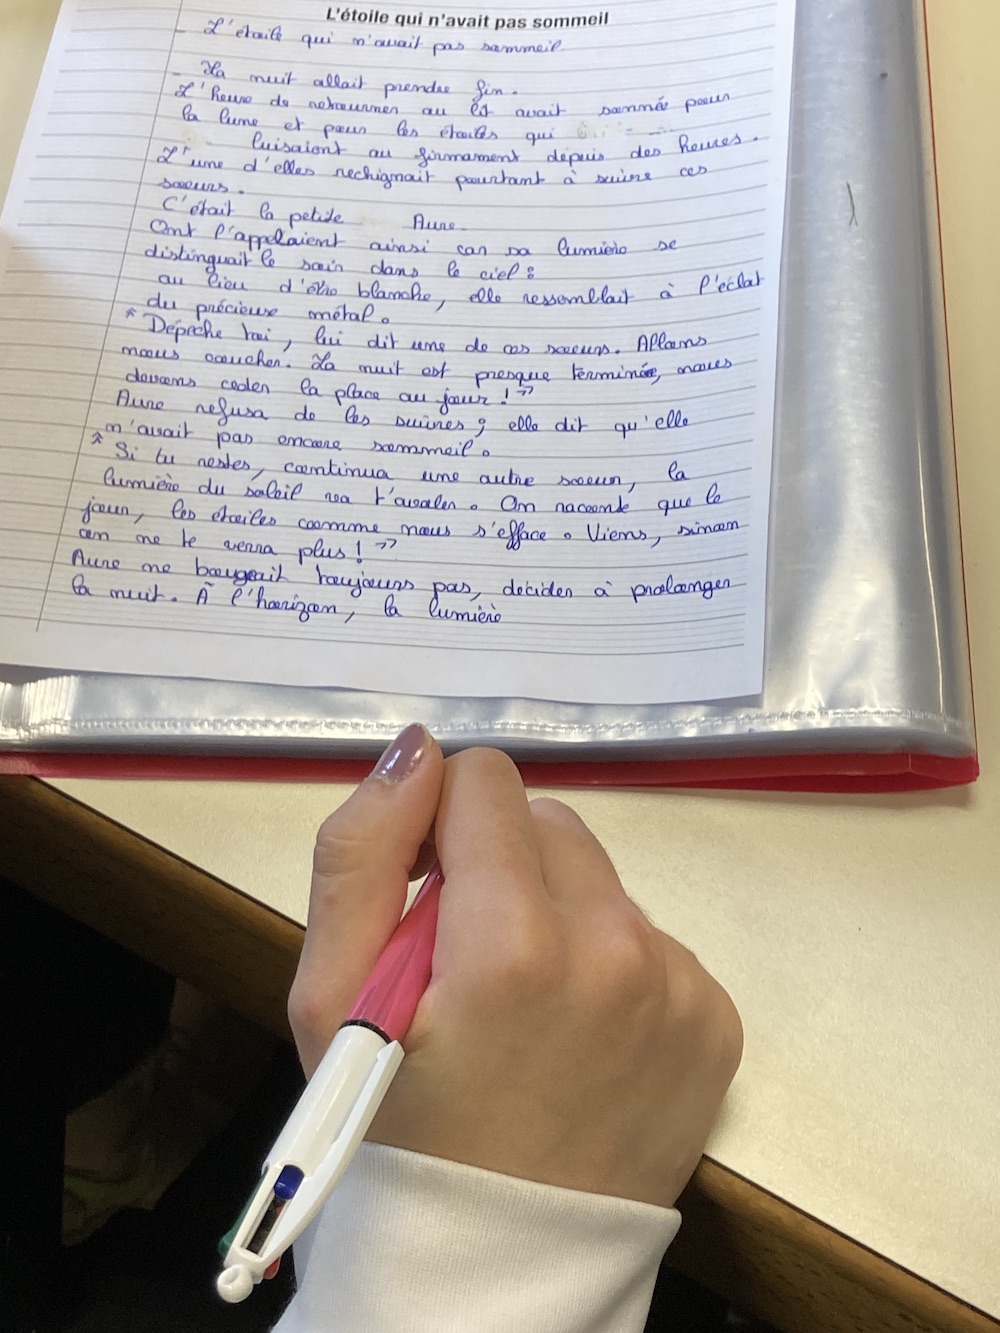 L'étoile qui n'avait pas sommeil
L'étoile qui n'avait pas sommeil
La nuit allait prendre fin.
L'heure de retourner au lit avait sonnée pour
la lune et pour les étoiles qui
luisaient au firmament depuis des heures.
L'une d'elles rechignait pourtant à suivre ces
soeurs.
C'était la petite Aure.
Ont l'appelaient ainsi car sa lumière se
distinguait le soir dans le ciel :
au lieu d'être blanche, elle ressemblait à l'éclat
du précieux métal.
« Dépeche toi, lui dit une de ces soeurs. Allons
nous coucher. La nuit est presque terminée, nous
devons ceder la place au jour ! »
Aure refusa de les suivres ; elle dit qu'elle
n'avait pas encore sommeil.
« Si tu restes, continua une autre soeur, la
lumière du soleil va t'avaler. On raconte que le
jour, les étoiles comme nous s'efface. Viens, sinon
on ne te verra plus ! »
Aure ne bougeait toujours pas, décider à prolonger
la nuit. À l'horizon, la lumière